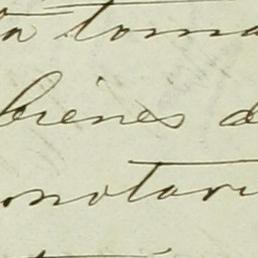 ta toma
bienes d
notari